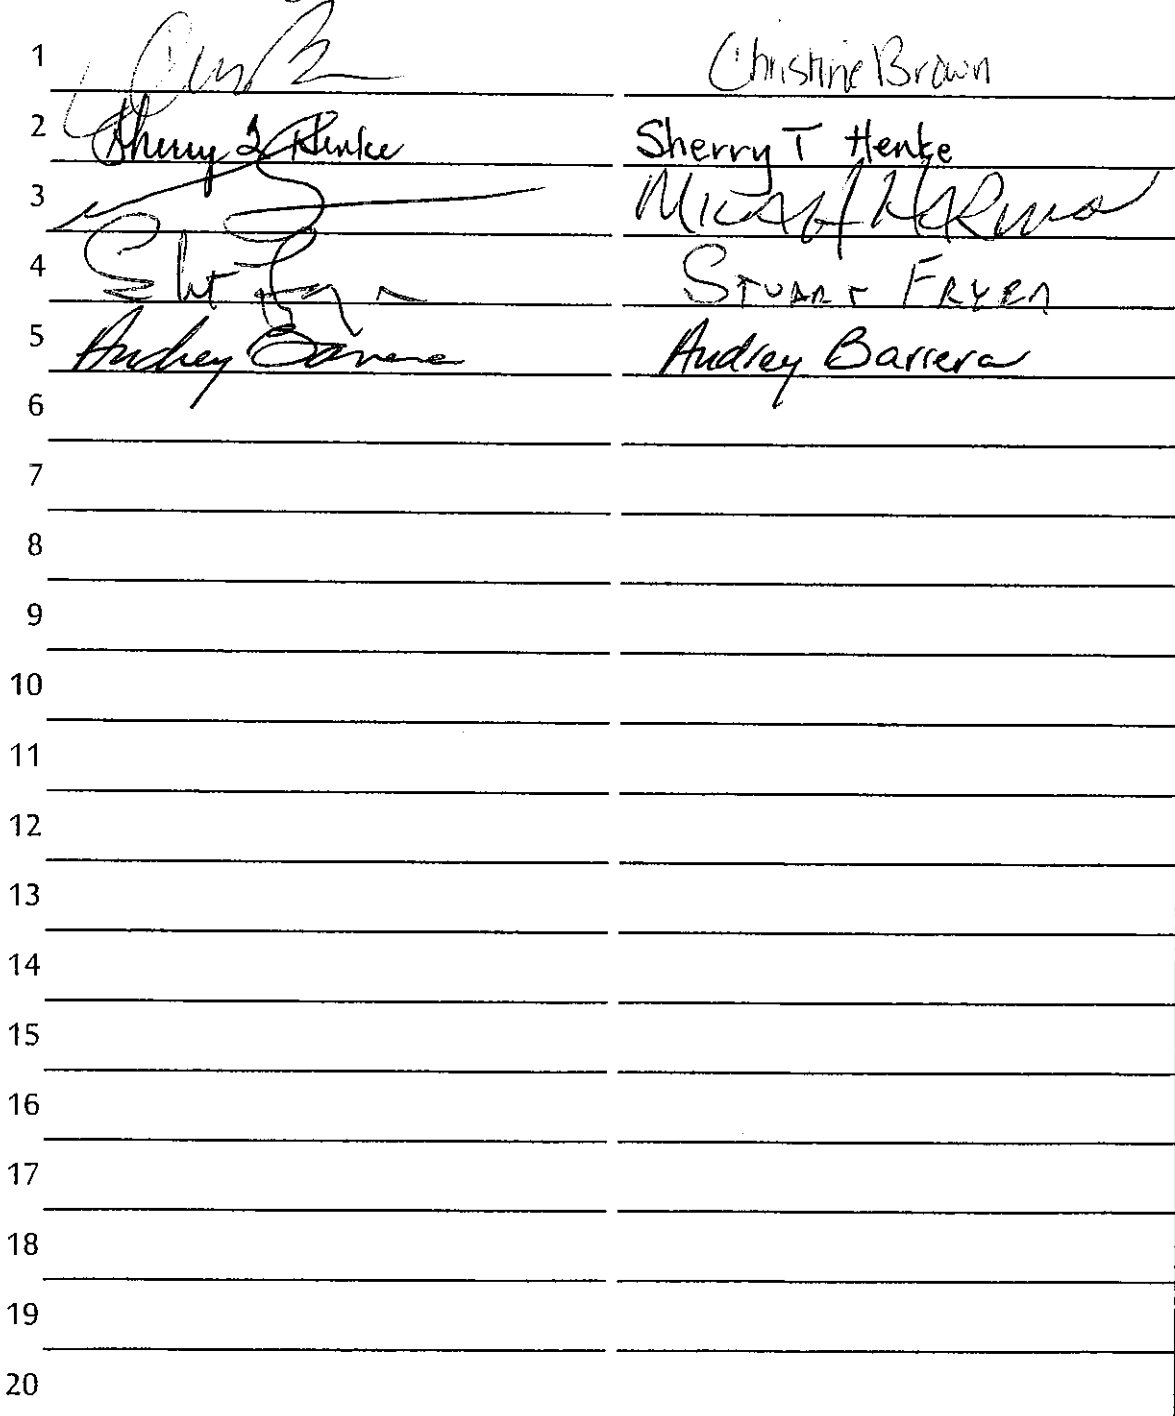 1 Christine Brown
2 Sherry T Henke Sherry T Henke
3
4 STUART FRYER
5 Audrey Barrera Audrey Barrera
6
7
8
9
10
11
12
13
14
15
16
17
18
19
20